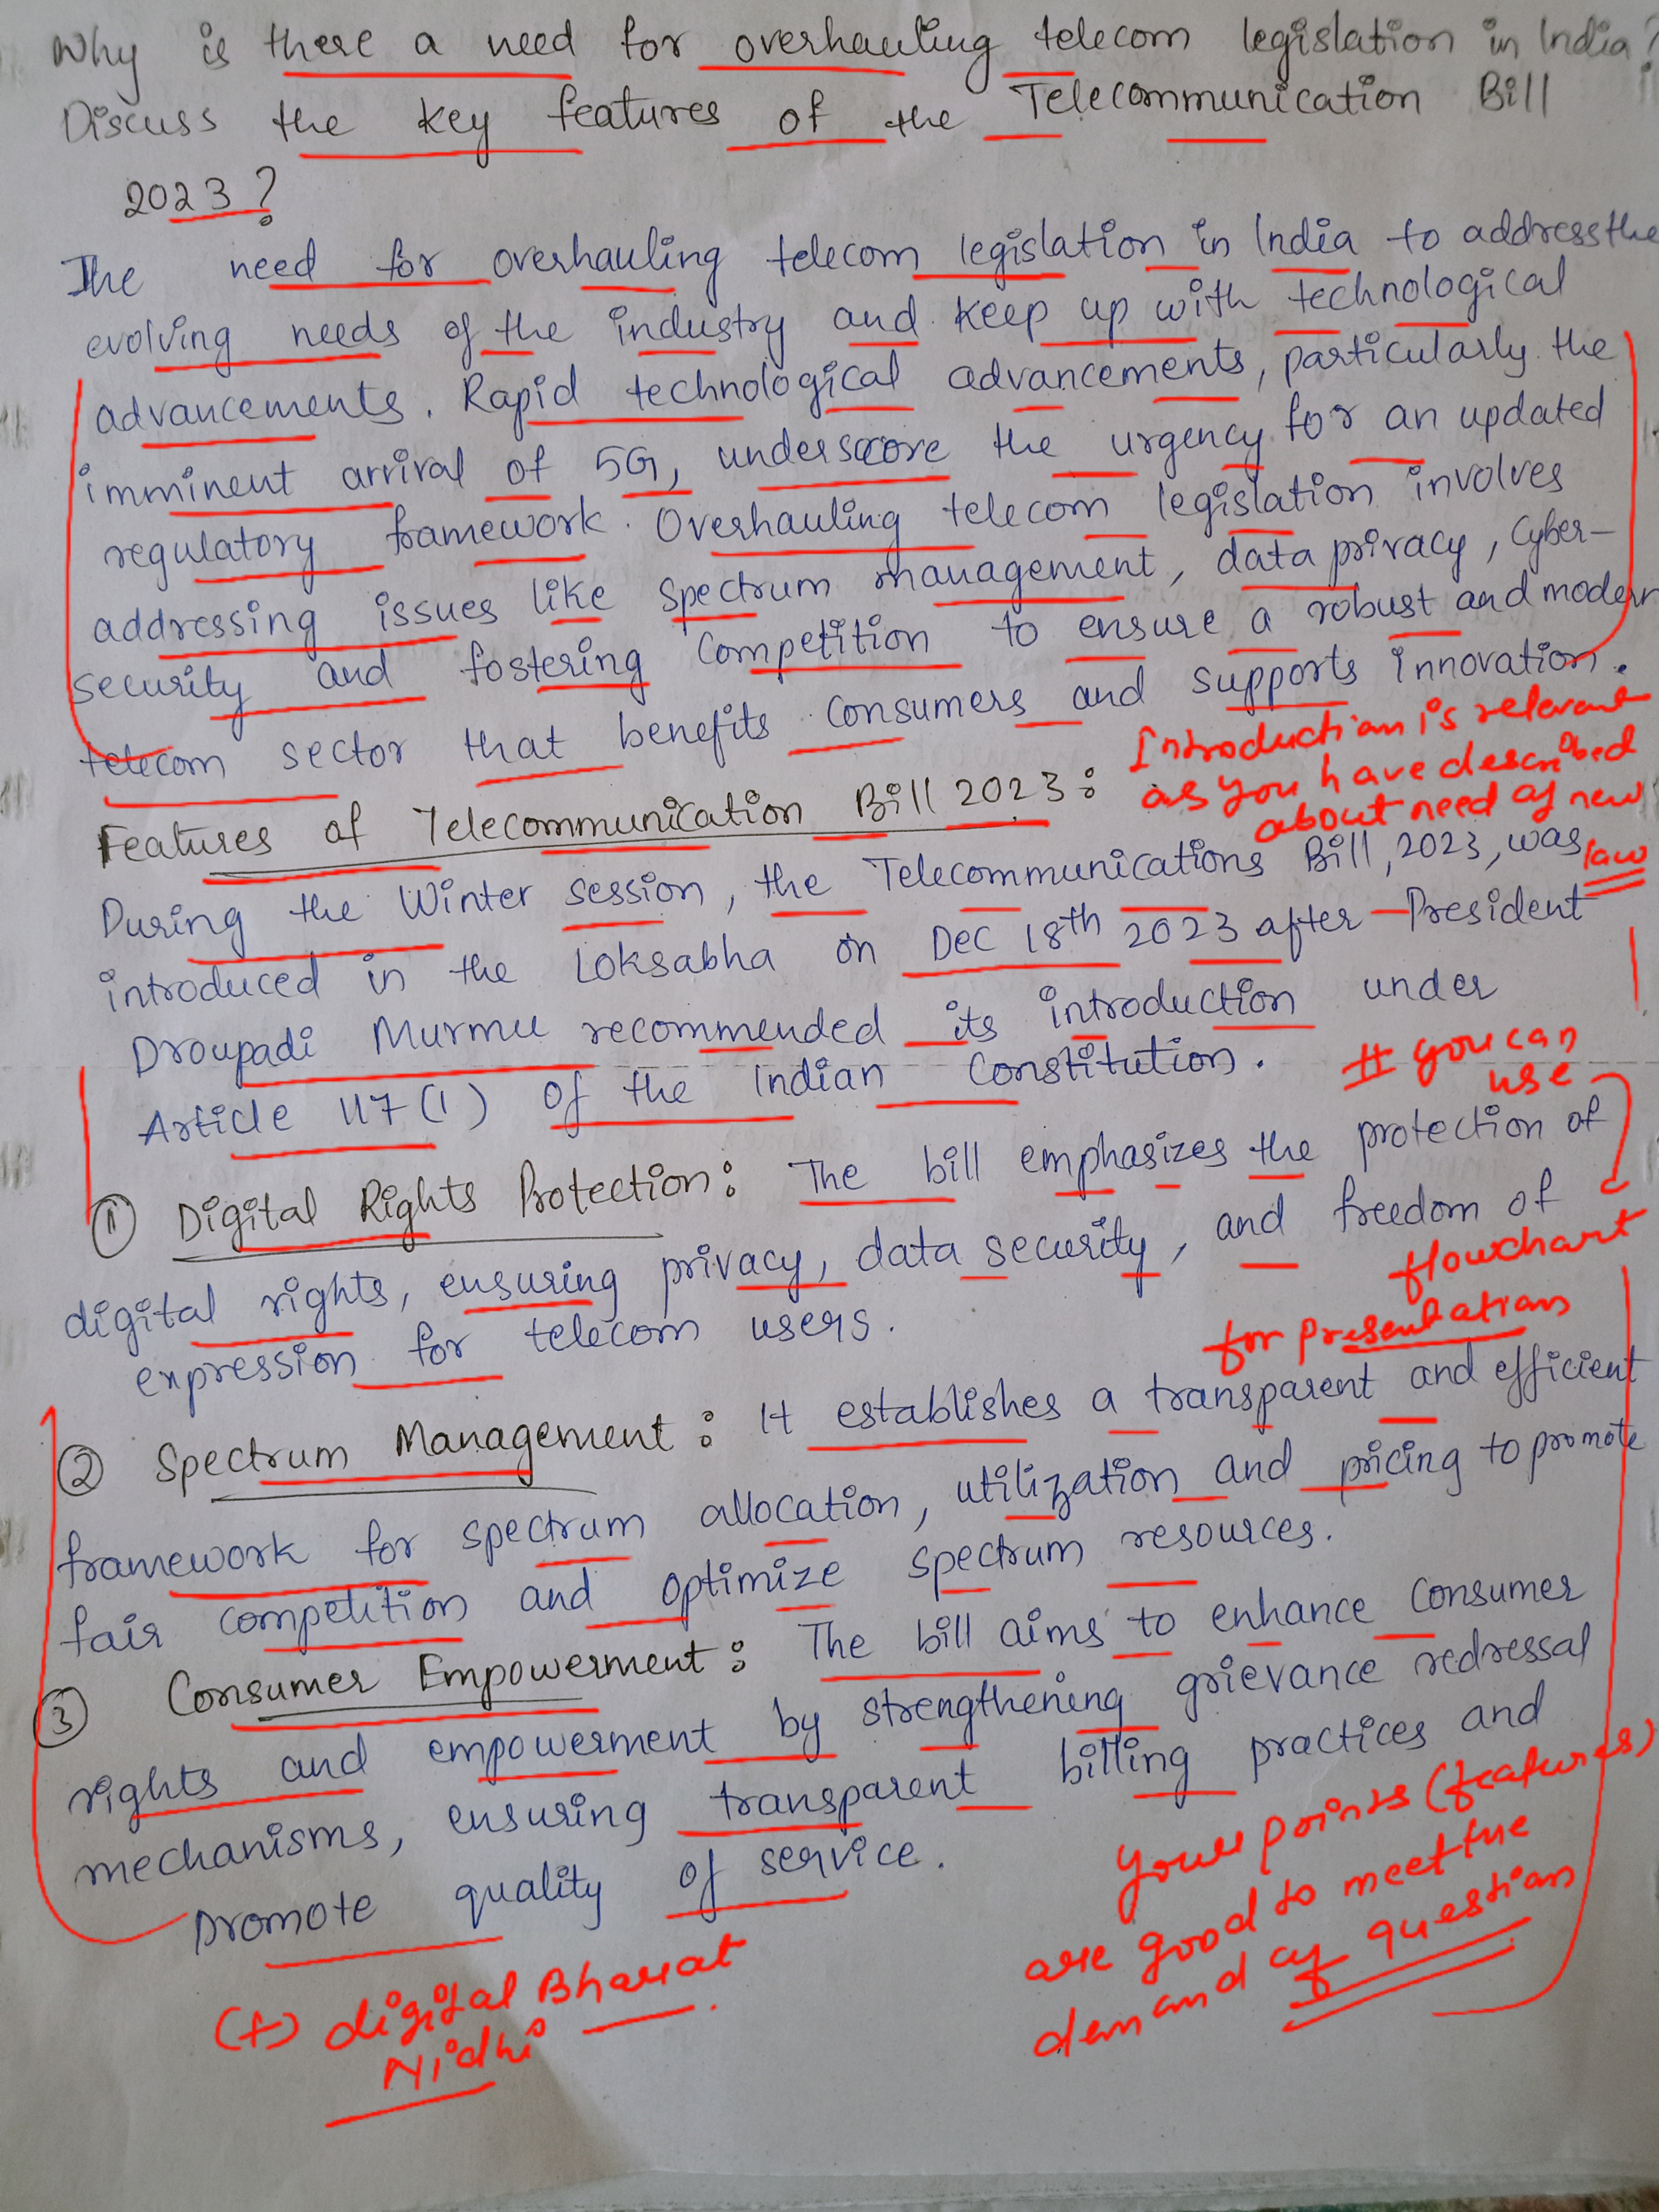 Why is there a need for overhauling telecom legislation in India?
Discuss the key features of the Telecommunication Bill
2023?
The need for overhauling telecom legislation in India to address the
evolving needs of the industry and keep up with technological
advancements. Rapid technological advancements, particularly the
imminent arrival of 5G, underscore the urgency for an updated
regulatory framework. Overhauling telecom legislation involves
addressing issues like spectrum management, data privacy, cyber-
security and fostering competition to ensure a robust and modern
telecom sector that benefits consumers and supports innovation.
Introduction is relevant
as you have described
about need of new
law
Features of Telecommunication Bill 2023:
During the Winter session, the Telecommunications Bill, 2023, was
introduced in the Loksabha on Dec 18th 2023 after President
Droupadi Murmu recommended its introduction under
Article 117(1) of the Indian Constitution.
# you can
use
flowchart
for presentation
① Digital Rights Protection: The bill emphasizes the protection of
digital rights, ensuring privacy, data security, and freedom of
expression for telecom users.
② Spectrum Management: It establishes a transparent and efficient
framework for spectrum allocation, utilization and pricing to promote
fair competition and optimize spectrum resources.
③ Consumer Empowerment: The bill aims to enhance consumer
rights and empowerment by strengthening grievance redressal
mechanisms, ensuring transparent billing practices and
promote quality of service.
Your points (features)
are good to meet the
demand of question
(+) digital Bharat
Nidhi